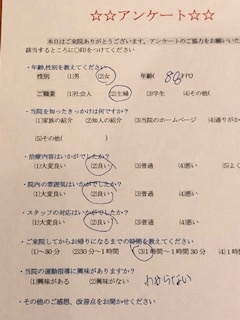 ☆☆アンケート☆☆
本日はご来院ありがとうございます。アンケートのご協力をお願いいた
該当するところに○印をつけてください
・年齢,性別を教えてください
性別 (1)男 (2)女 年齢( 80 代)
ご職業 (1)社会人 (2)主婦 (3)学生 (4)その他(
・当院を知ったきっかけは何ですか?
(1)家族の紹介 (2)知人の紹介 (3)当院のホームページ (4)通りが
(5)その他( )
・治療内容はいかがでしたか?
(1)大変良い (2)良い (3)普通 (4)悪い (5)
・院内の雰囲気はいかがでしたか?
(1)大変良い (2)良い (3)普通 (4)悪い
・スタッフの対応はいかがでしたか?
(1)大変良い (2)良い (3)普通 (4)悪い
・ご来院してからお帰りになるまでの時間を教えてください
(1)~30分 (2)30分~1時間 (3)1時間~1時間30分 (4)1時
・当院の運動指導に興味がありますか?
(1)興味がある (2)興味がない わからない
・その他のご感想、改善点をお聞かせください